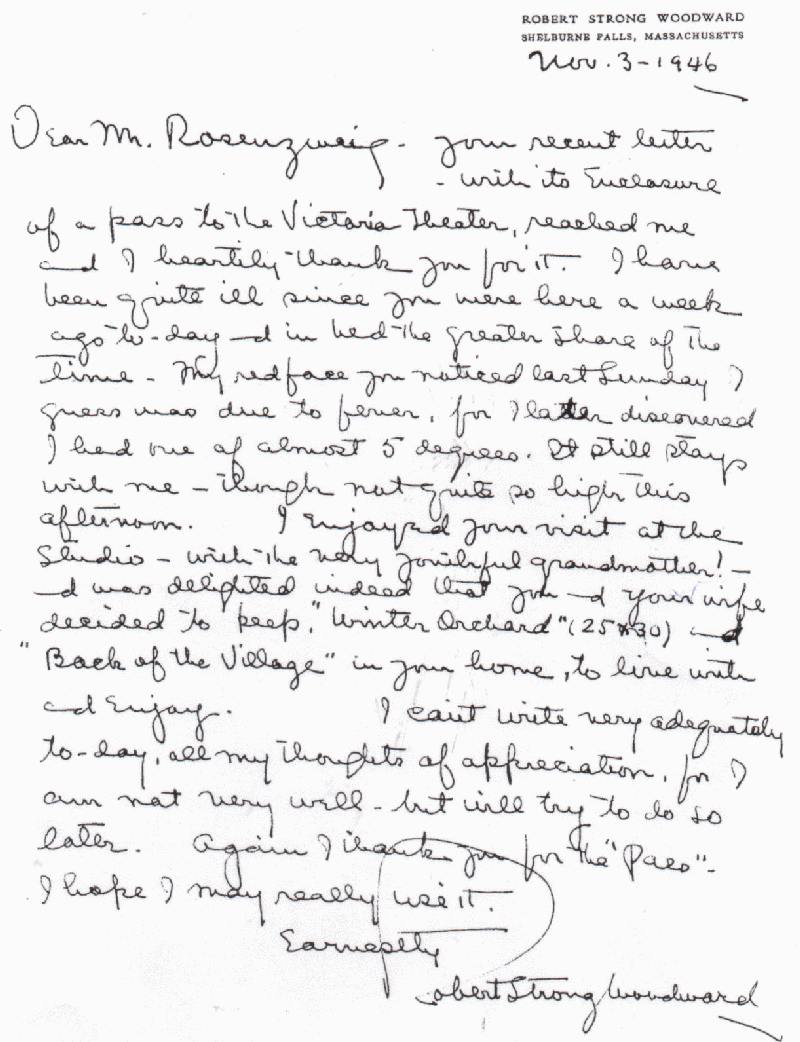 ROBERT STRONG WOODWARD
SHELBURNE FALLS, MASSACHUSETTS
Nov. 3-1946
Dear Mr. Rosenzweig - your recent letter
- with its Enclosure
of a pass to the Victoria Theater, reached me
and I heartily thank you for it. I have
been quite ill since you were here a week
ago to-day and in bed the greater share of the
time - My red face you noticed last Sunday I
guess was due to fever, for I later discovered
I had one of almost 5 degrees. It still stays
with me - though not quite so high this
afternoon. I Enjoyed your visit at the
Studio - with the very youthful grandmother! -
and was delighted indeed that you and your wife
decided to keep, "Winter Orchard" (25x30) and
"Back of the Village" in your home, to live with
and Enjoy. I can't write very adequately
to-day, all my thoughts of appreciation, for I
am not very well - but will try to do so
later. Again I thank you for the "Pass" -
I hope I may really use it.
Earnestly
Robert Strong Woodward